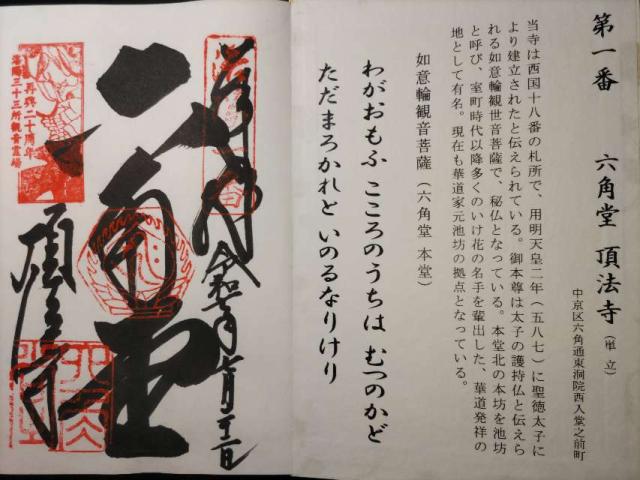 第一番 六角堂 頂法寺（単立）
中京区六角通東洞院西入堂之前町
当寺は西国十八番の札所で、用明天皇二年（五八七）に聖徳太子に
より建立されたと伝えられている。御本尊は太子の護持仏と伝えら
れる如意輪観世音菩薩で、秘仏となっている。本堂北の本坊を池坊
と呼び、室町時代以降多くのいけ花の名手を輩出した、華道発祥の
地として有名。現在も華道家元池坊の拠点となっている。
如意輪観音菩薩（六角堂 本堂）
わがおもふ こころのうちは むつのかど
ただまろかれと いのるなりけり
奉拝
六角堂
頂法寺
再興二十周年
洛陽三十三所観音霊場